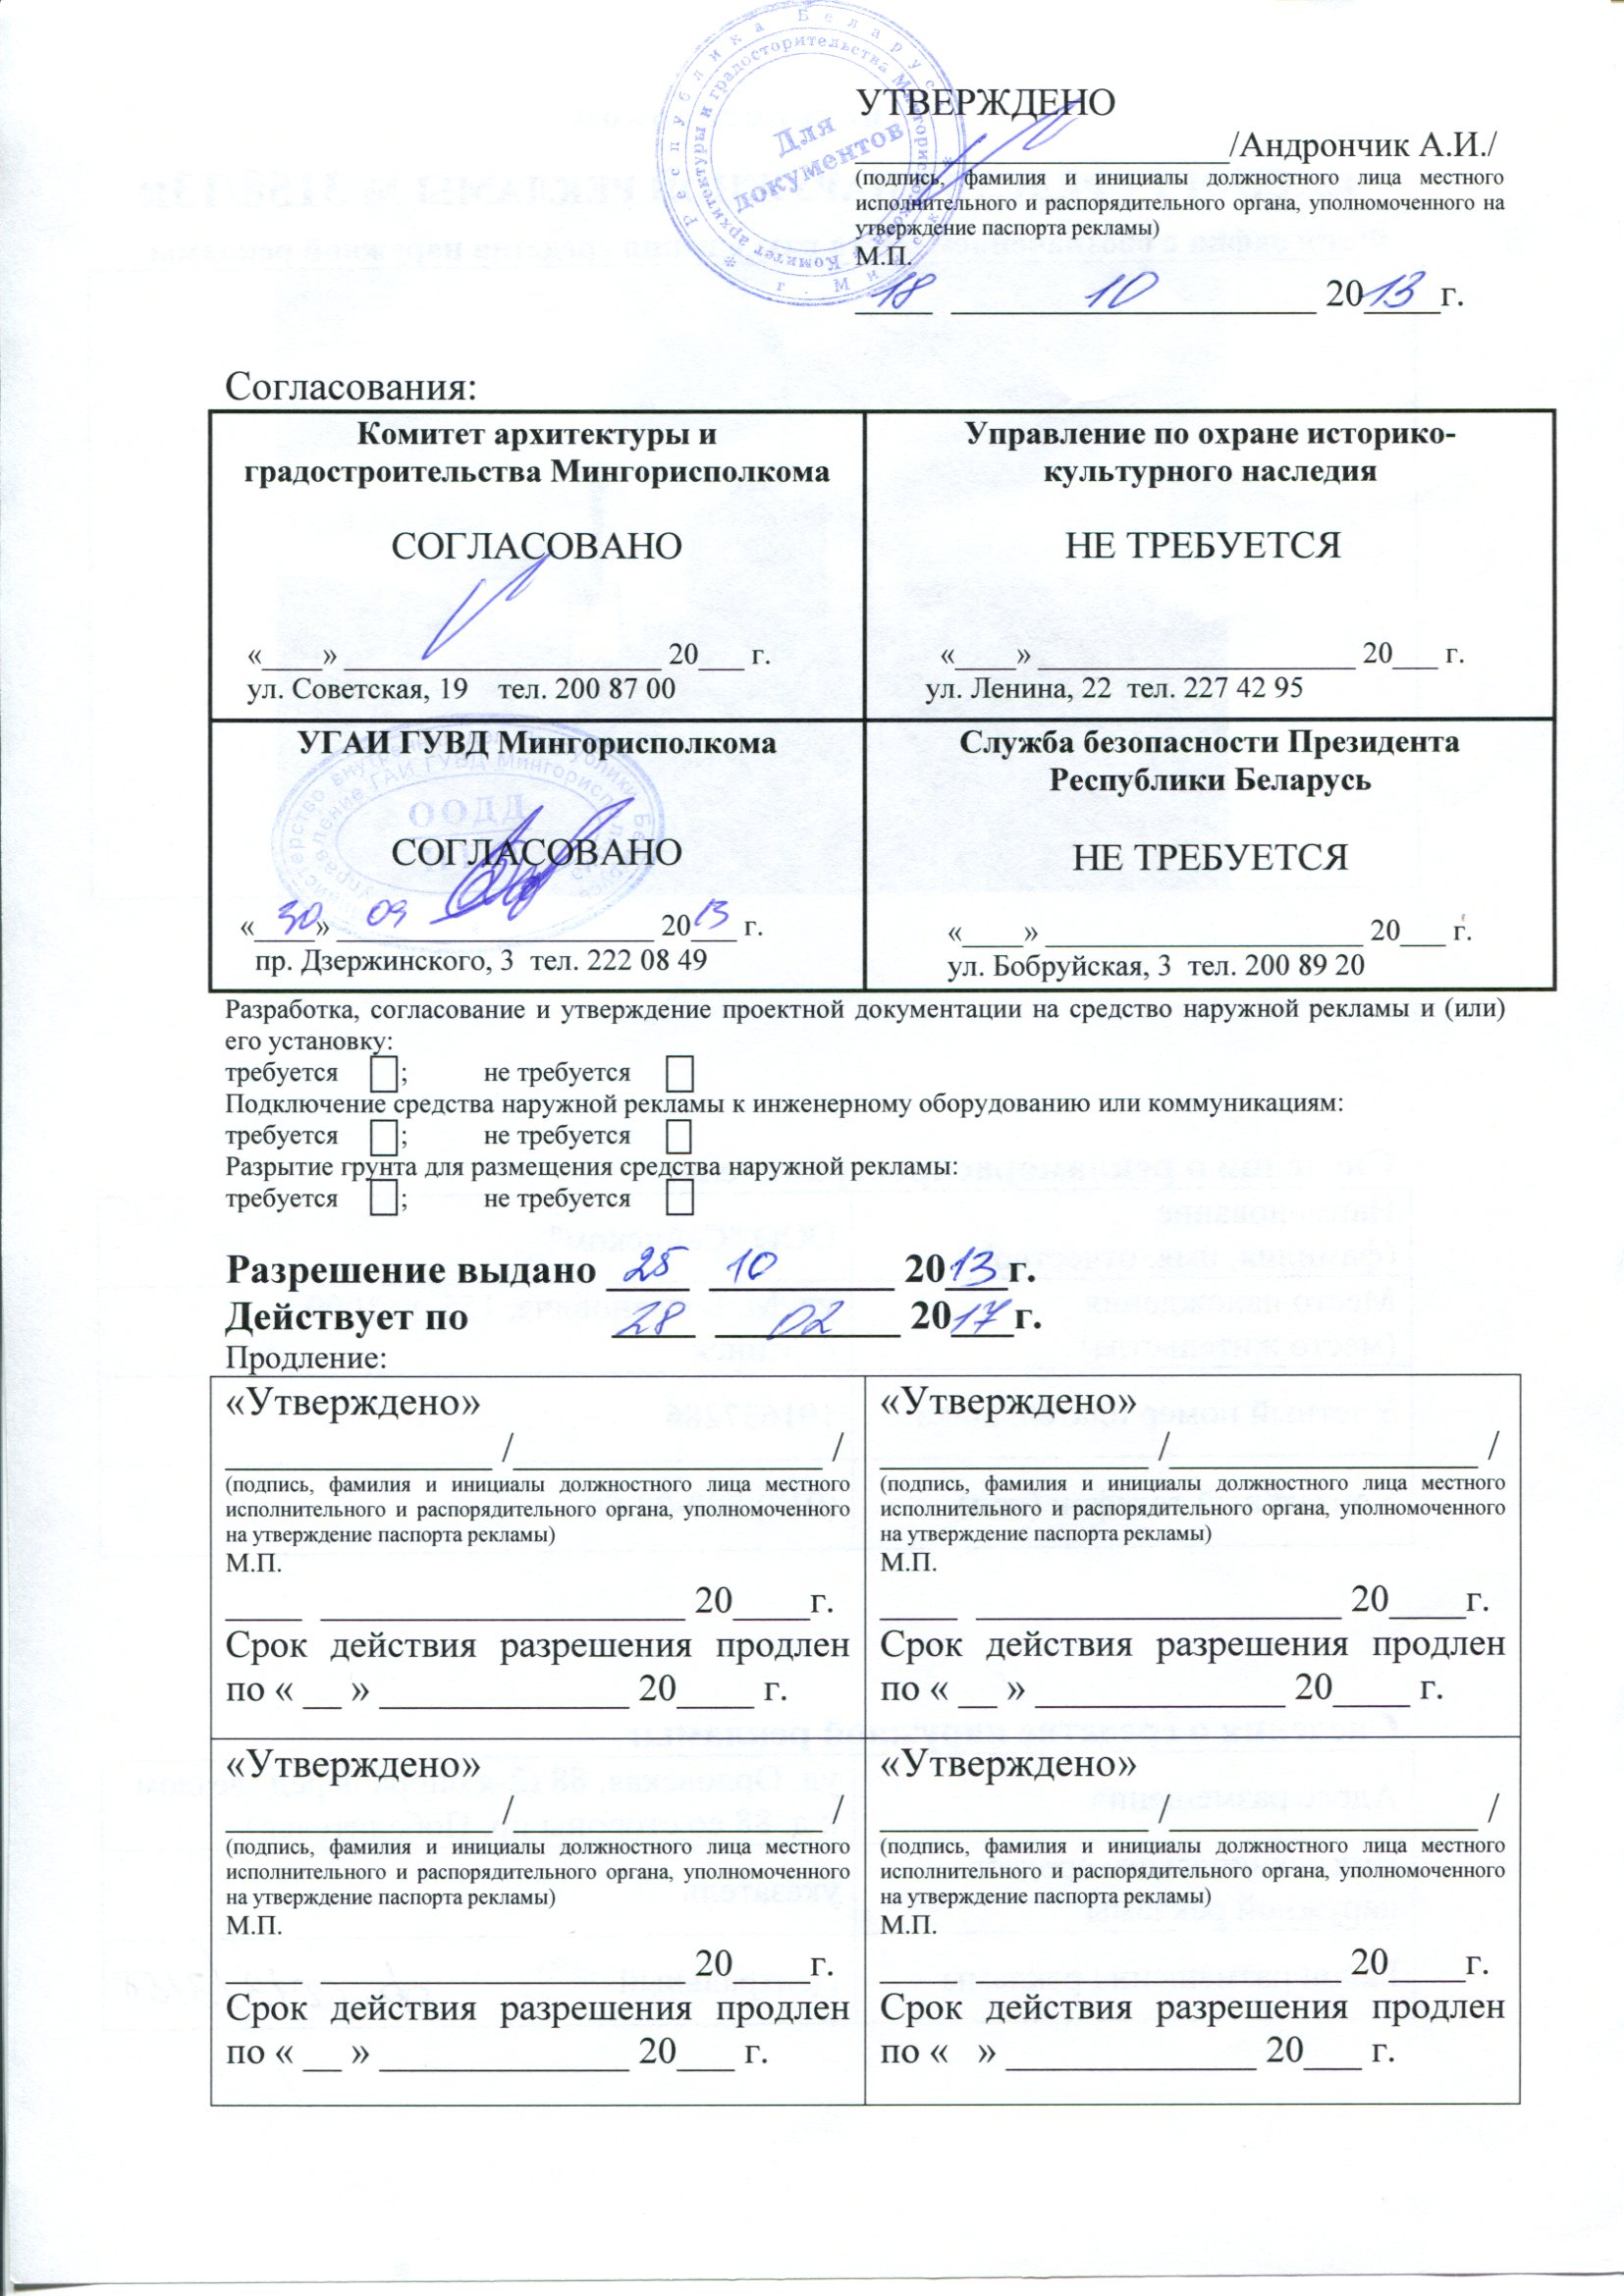 Республика Беларусь
г. Минск
Комитет архитектуры и градостроительства Мингорисполкома
Для
документов
УТВЕРЖДЕНО
____________________/Андрончик А.И./
(подпись, фамилия и инициалы должностного лица местного
исполнительного и распорядительного органа, уполномоченного на
утверждение паспорта рекламы)
М.П.
18 10 2013г.
Согласования:
Комитет архитектуры и
градостроительства Мингорисполкома
СОГЛАСОВАНО
«____» _____________________ 20___ г.
ул. Советская, 19 тел. 200 87 00
Управление по охране историко-
культурного наследия
НЕ ТРЕБУЕТСЯ
«____» _____________________ 20___ г.
ул. Ленина, 22 тел. 227 42 95
УГАИ ГУВД Мингорисполкома
ООДД
СОГЛАСОВАНО
«30» 09 2013 г.
пр. Дзержинского, 3 тел. 222 08 49
Служба безопасности Президента
Республики Беларусь
НЕ ТРЕБУЕТСЯ
«____» _____________________ 20___ г.
ул. Бобруйская, 3 тел. 200 89 20
Разработка, согласование и утверждение проектной документации на средство наружной рекламы и (или)
его установку:
требуется ; не требуется
Подключение средства наружной рекламы к инженерному оборудованию или коммуникациям:
требуется ; не требуется
Разрытие грунта для размещения средства наружной рекламы:
требуется ; не требуется
Разрешение выдано 25 10 2013г.
Действует по 28 02 2017г.
Продление:
«Утверждено»
______________ /________________ /
(подпись, фамилия и инициалы должностного лица местного
исполнительного и распорядительного органа, уполномоченного
на утверждение паспорта рекламы)
М.П.
____ ___________________ 20____г.
Срок действия разрешения продлен
по « __ » _____________ 20____ г.
«Утверждено»
______________ /________________ /
(подпись, фамилия и инициалы должностного лица местного
исполнительного и распорядительного органа, уполномоченного
на утверждение паспорта рекламы)
М.П.
____ ___________________ 20____г.
Срок действия разрешения продлен
по « __ » _____________ 20____ г.
«Утверждено»
______________ /________________ /
(подпись, фамилия и инициалы должностного лица местного
исполнительного и распорядительного органа, уполномоченного
на утверждение паспорта рекламы)
М.П.
____ ___________________ 20____г.
Срок действия разрешения продлен
по « __ » _____________ 20___ г.
«Утверждено»
______________ /________________ /
(подпись, фамилия и инициалы должностного лица местного
исполнительного и распорядительного органа, уполномоченного
на утверждение паспорта рекламы)
М.П.
____ ___________________ 20____г.
Срок действия разрешения продлен
по « » _____________ 20___ г.